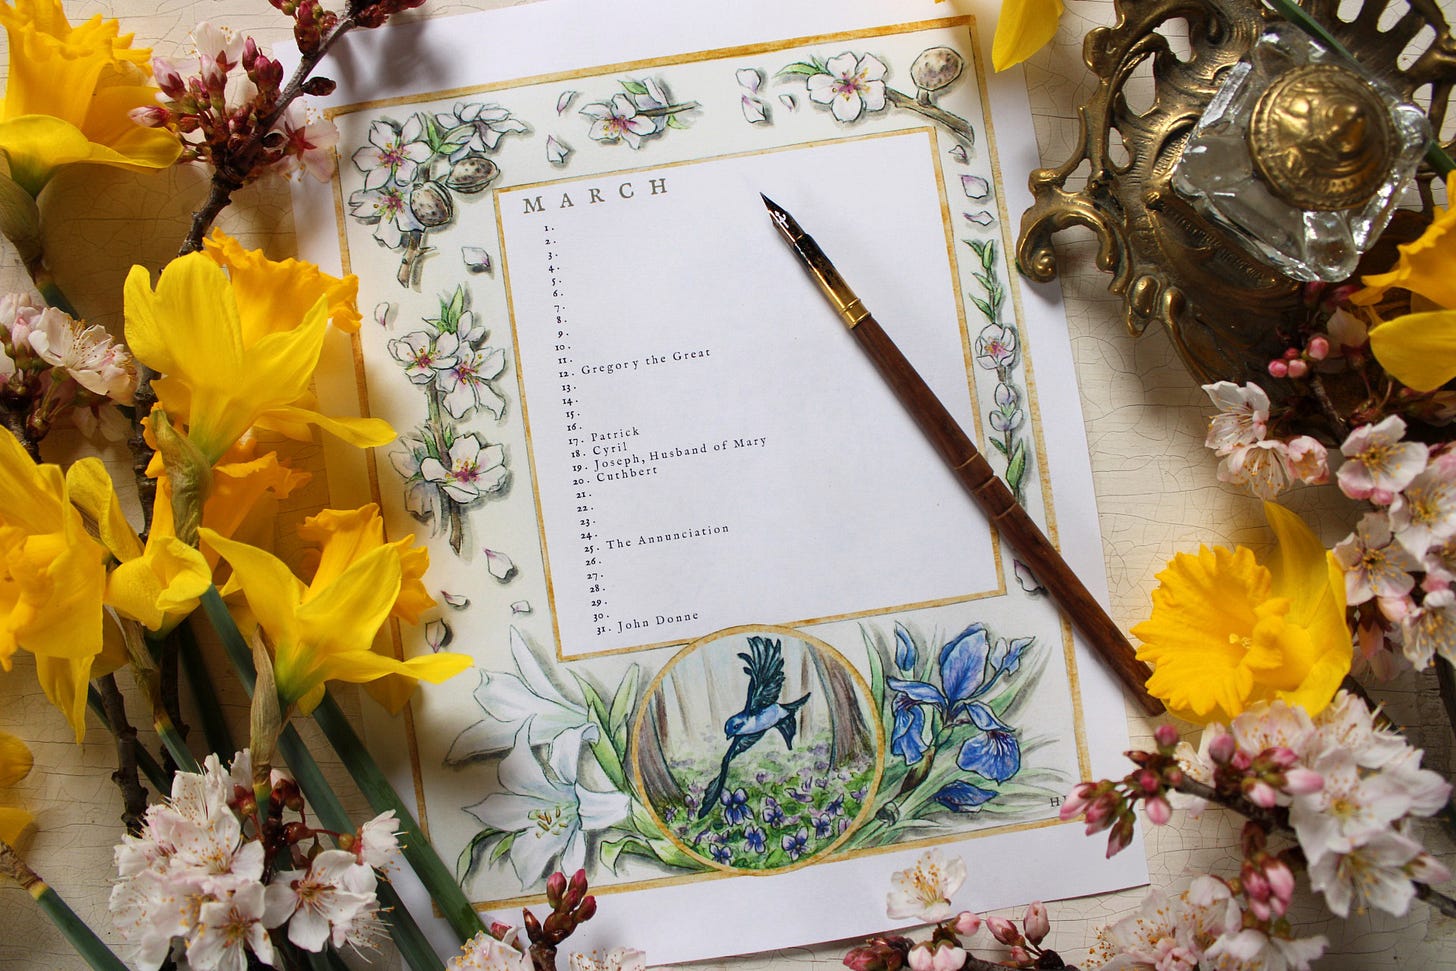 MARCH
1.
2.
3.
4.
5.
6.
7.
8.
9.
10.
11.
12. Gregory the Great
13.
14.
15.
16.
17. Patrick
18. Cyril
19. Joseph, Husband of Mary
20. Cuthbert
21.
22.
23.
24.
25. The Annunciation
26.
27.
28.
29.
30.
31. John Donne